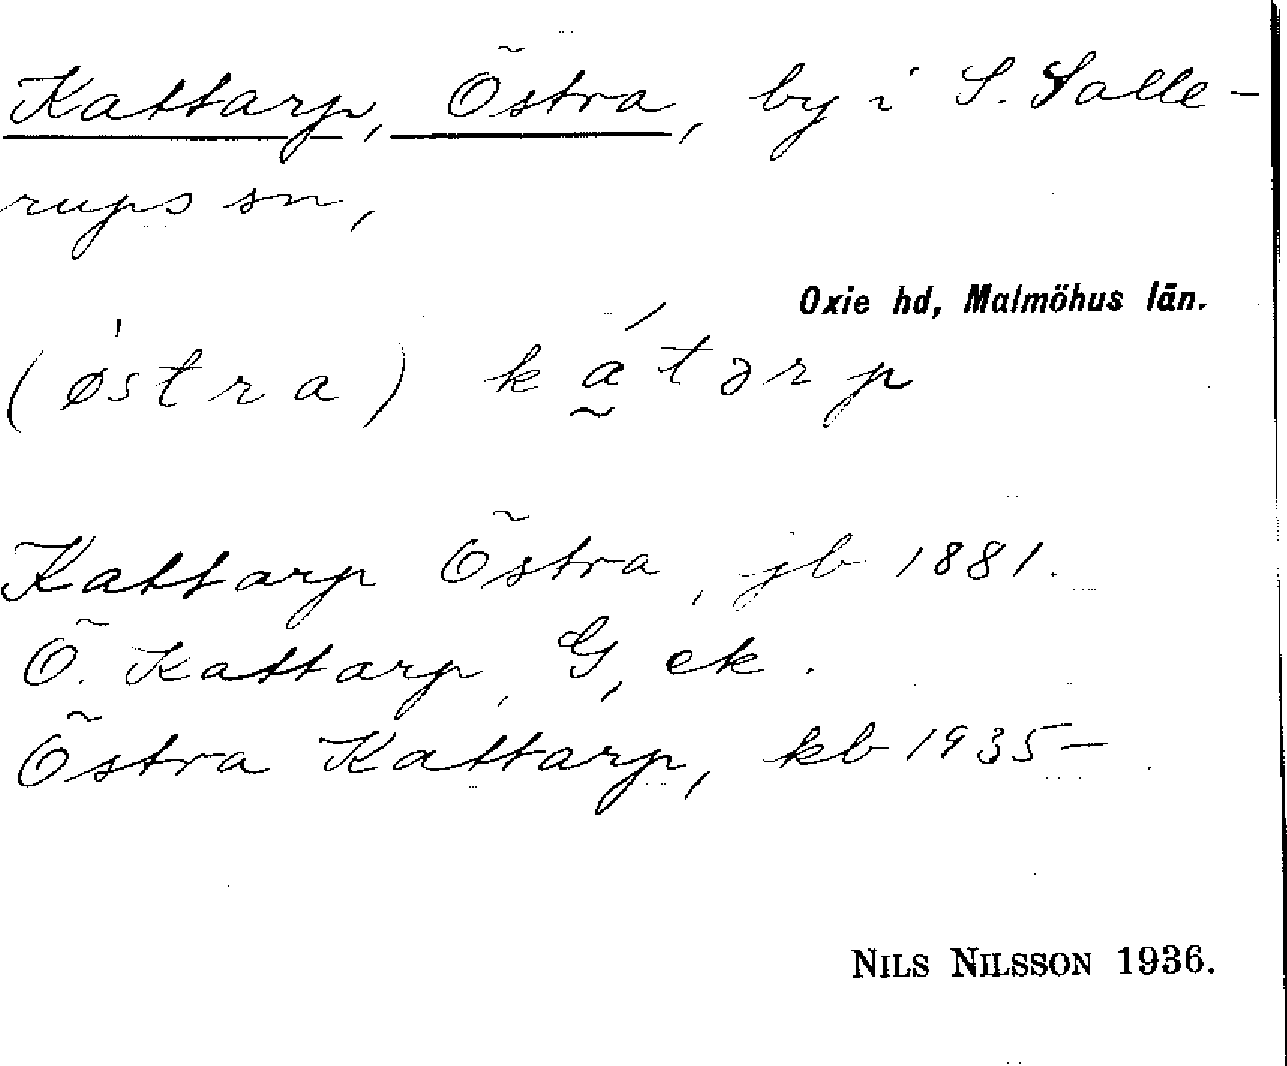 Kattarp, Östra, by i S. Salle-
rups sn,
Oxie hd, Malmöhus län.
(østra) ká̰tərp
Kattarp Östra, jb 1881.
Ö. Kattarp, G, ek.
Östra Kattarp, kb 1935–
NILS NILSSON 1936.